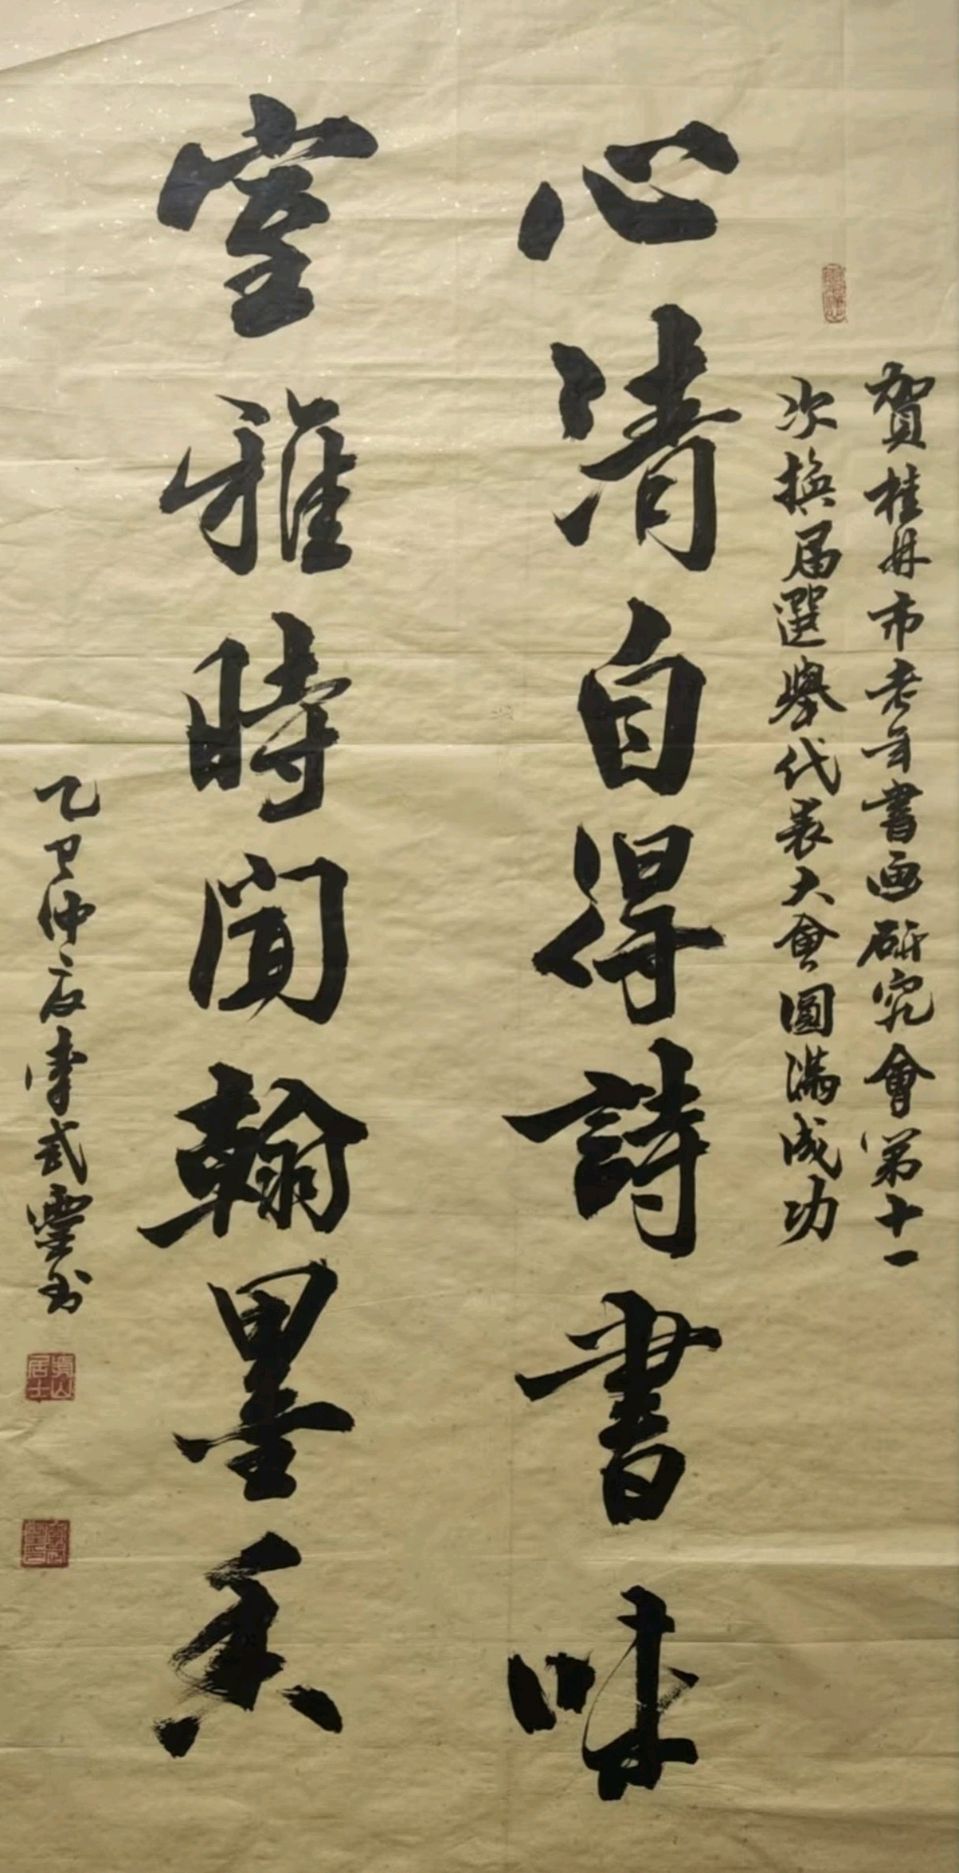 賀桂林市老年書画研究會第十一
次換届選舉代表大會圓滿成功
心清自得詩書味
室雅時聞翰墨香
乙巳仲夏李武靈书
山居士